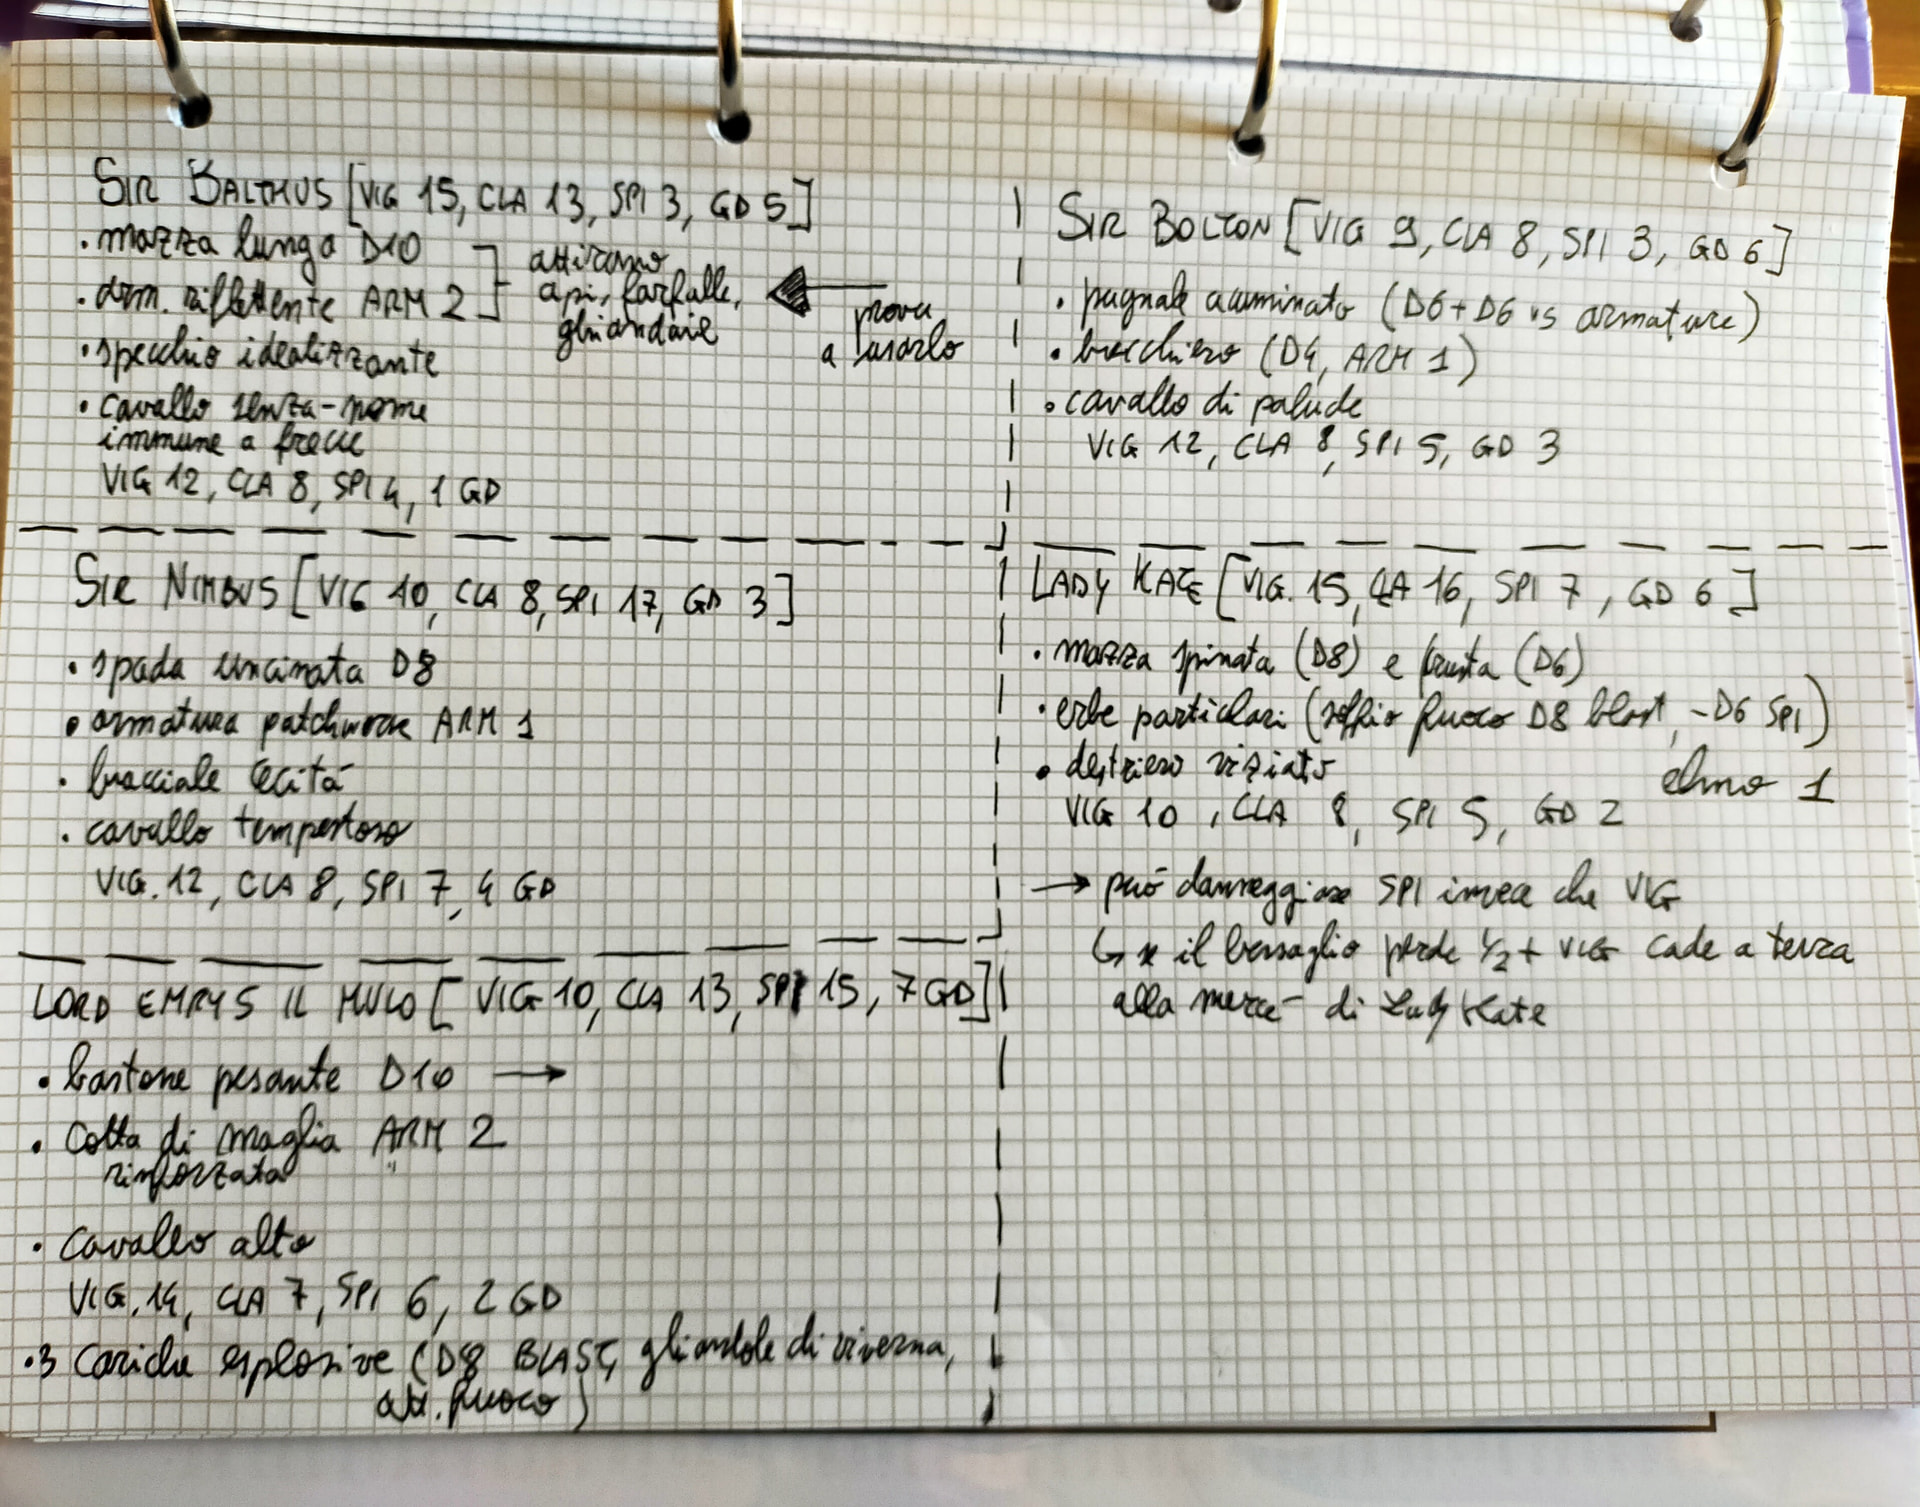 SIR BALTHUS [VIG 15, CLA 13, SPI 3, GD 5]
• mazza lunga D10
• arm. riflettente ARM 2
attirano
api, farfalle,
ghiandaie
prova
a usarlo
• specchio idealizzante
• cavallo senza-nome
immune a frecce
VIG 12, CLA 8, SPI 4, 1 GD
SIR BOLTON [VIG 9, CLA 8, SPI 3, GD 6]
• pugnale acuminato (D6+D6 vs armature)
• brocchiero (D4, ARM 1)
• cavallo di palude
VIG 12, CLA 8, SPI 5, GD 3
SIR NIMBUS [VIG 10, CLA 8, SPI 17, GD 3]
• spada uncinata D8
• armatura patchwork ARM 1
• bracciale cecità
• cavallo tempestoso
VIG. 12, CLA 8, SPI 7, 4 GD
LADY KATE [VIG. 15, CLA 16, SPI 7, GD 6]
• mazza spinata (D8) e frusta (D6)
• erbe particlari (soffio fuoco D8 blast, -D6 SPI)
• destriero viziato
elmo 1
VIG 10, CLA 8, SPI 5, GD 2
→ può danneggiare SPI invece che VIG
↳ se il bersaglio perde 1/2+ VIG cade a terra
alla mercé di Lady Kate
LORD EMRYS IL MULO [VIG 10, CLA 13, SPI 15, 7 GD]
• bastone pesante D10 →
• Cotta di maglia ARM 2
rinforzata "
• cavallo alto
VIG. 14, CLA 7, SPI 6, 2 GD
• 3 cariche esplosive (D8 BLAST, ghiandole di viverna,
att. fuoco)